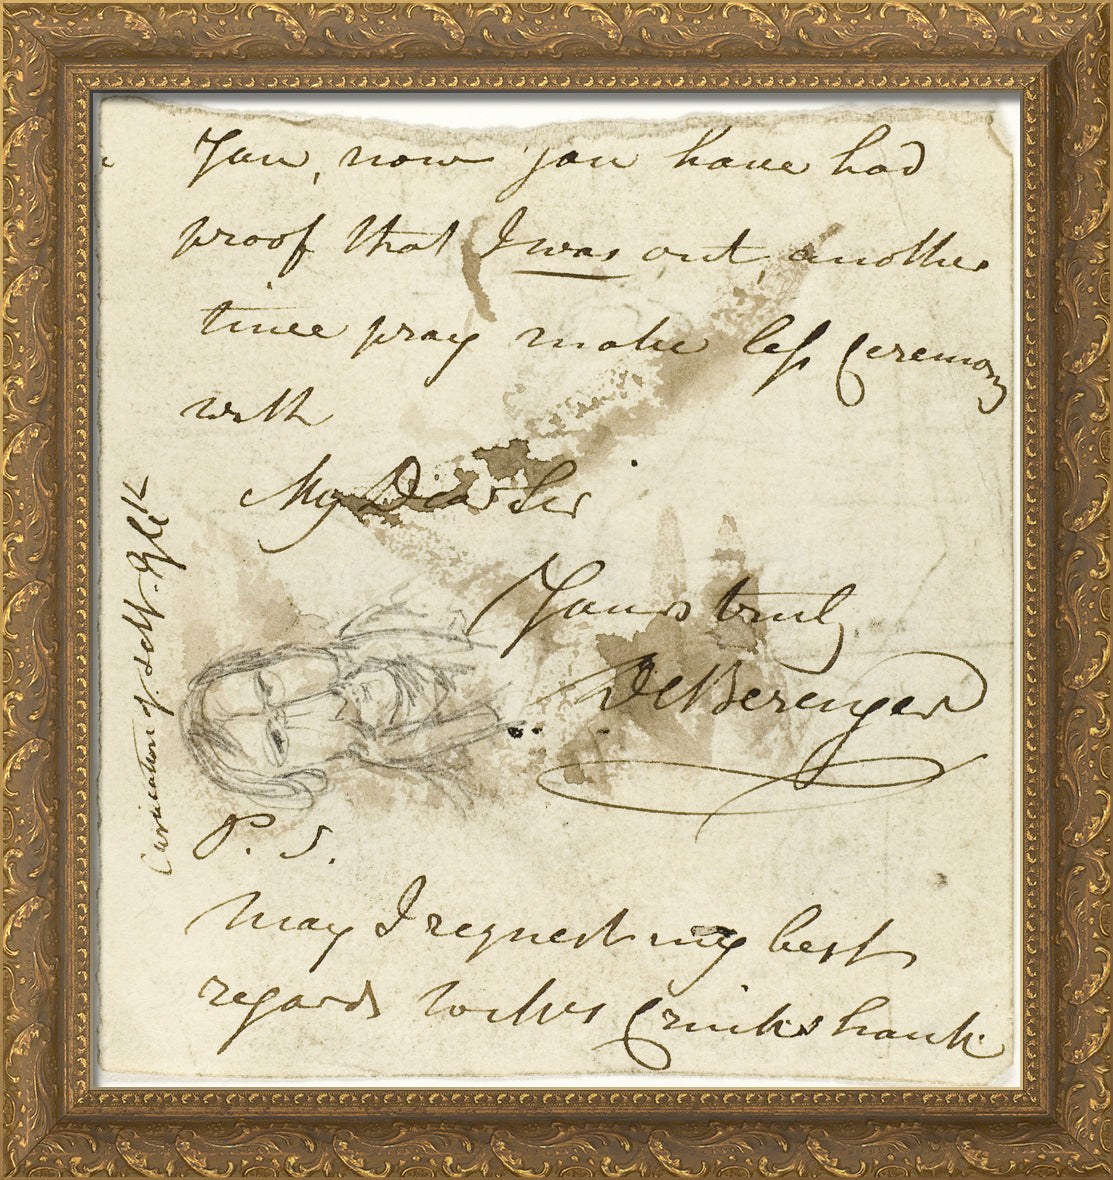 You, now you have had
proof that I was out, another
time pray make less Ceremony
with
My Dear Sir
Yours truly
De Berenger
P. S.
May I request my best
regards to Mrs Cruikshank
Caricature of self. Geo Ck